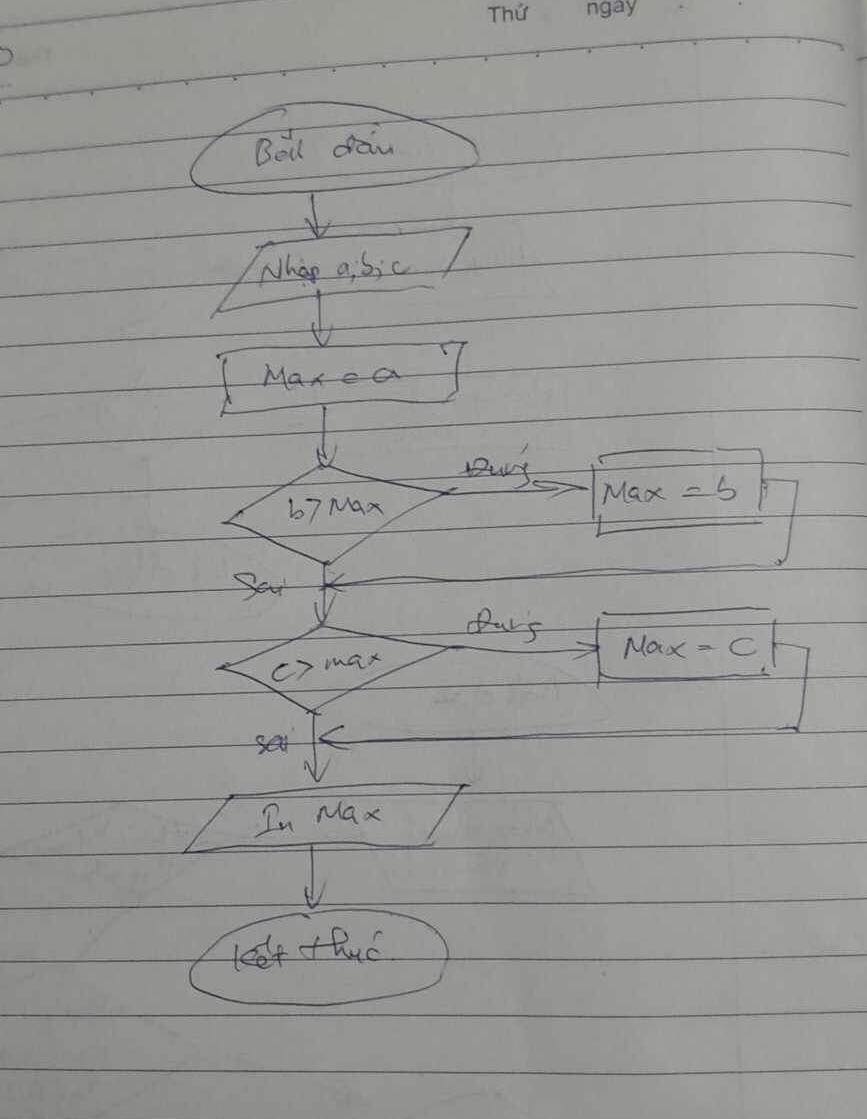 Thứ ngày
Bắt đầu
Nhập a, b, c
Max = a
b > Max
Đúng
Max = b
Sai
c > max
Đúng
Max = C
sai
In Max
Kết thúc